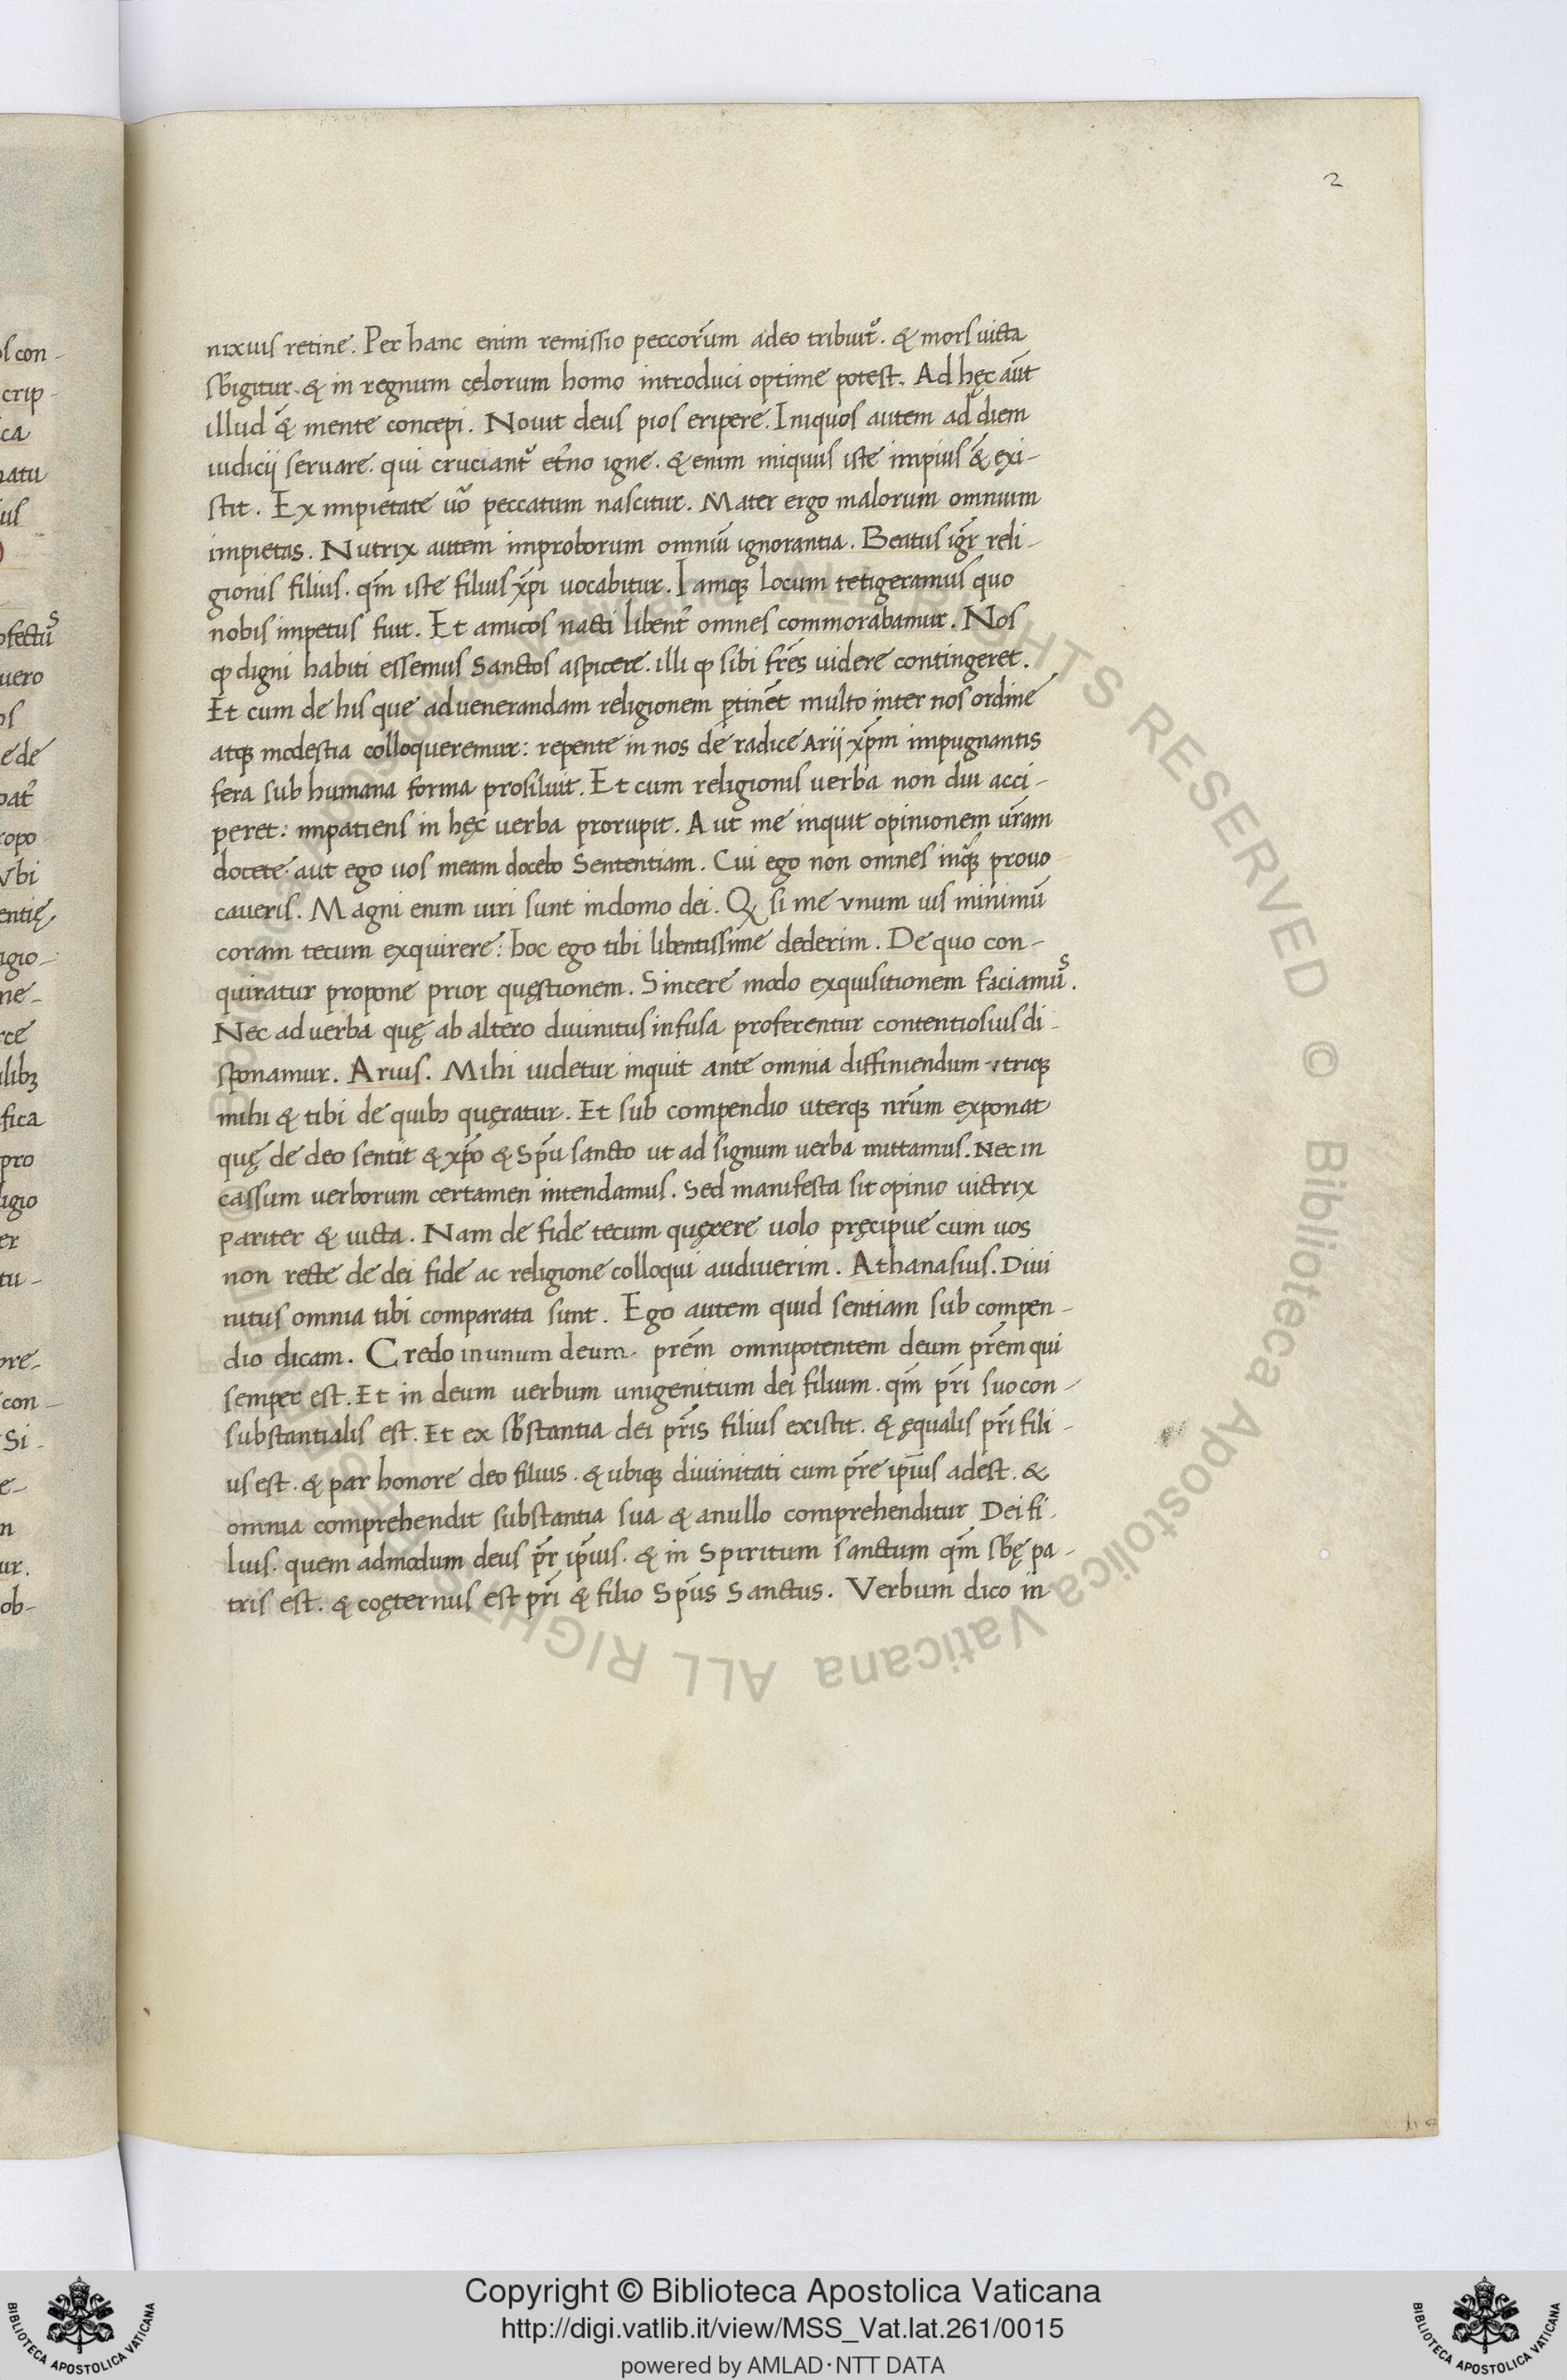 2
nixius retine. Per hanc enim remissio peccoꝝ̃um adeo tribuit᷑. & mors uicta
sb̄igitur. & in regnum cęlorum homo introduci optime potest. Ad hęc aūt
illud &̄ mente concepi. Nouit deus pios eripere. Iniquos autem ad diem
iudicij seruare. qui cruciant᷑ et̄no igne. & enim iniquus iste impius &̄ exi-
stit. Ex impietate uō peccatum nascitur. Mater ergo malorum omnium
impietas. Nutrix autem improborum omniū ignorantia. Beatus igr̄ reli-
gionis filius. qm̄ iste filius xp̄i uocabitur. Iamqꝫ locum tetigeramus quo
nobis impetus fuit. Et amicos nacti libent᷑ omnes commorabamur. Nos
ꝙ digni habiti essemus Sanctos aspicere. illi ꝙ sibi fr̄es uidere contingeret.
Et cum de his que aduenerandam religionem ꝑtinēt multo inter nos ordine
atqꝫ modestia colloqueremur: repente in nos de radice Arij xp̄m impugnantis
fera sub humana forma prosiluit. Et cum religionis uerba non diu acci-
peret: impatiens in hęc uerba prorupit. Aut me inquit opinionem ur̄am
docete. aut ego uos meam docebo Sententiam. Cui ego non omnes inq̄ꝫ prouo
caueris. Magni enim uiri sunt indomo dei. Qꝫ si me vnum uis minimū
coram tecum exquirere: hoc ego tibi libentissime dederim. De quo con-
quiratur propone prior quęstionem. Sincere modo exquisitionem faciamuˢ.
Nec ad uerba quę ab altero diuinitus infusa proferentur contentiosius di-
sponamur. Arius. Mihi uidetur inquit ante omnia diffiniendum vtriqꝫ
mihi & tibi de quibꝫ quęratur. Et sub compendio uterqꝫ nr̄um exponat
quę de deo sentit & xp̄o & Sp̄u sancto ut ad signum uerba mittamus. Nec in
cassum uerborum certamen intendamus. Sed manifesta sit opinio uictrix
pariter & uicta. Nam de fide tecum quęrere uolo pręcipue cum uos
non recte de dei fide ac religione colloqui audiuerim. Athanasius. Diui
nitus omnia tibi comparata sunt. Ego autem quid sentiam sub compen-
dio dicam. Credo in unum deum. pr̄em omnipotentem deum pr̄em qui
semper est. Et in deum uerbum unigenitum dei filium. qm̄ pr̄i suo con-
substantialis est. Et ex sb̄stantia dei pr̄is filius existit. & ęqualis pr̄i fili-
us est. & par honore deo filius. & ubiqꝫ diuinitati cum pr̄e ip̄ius adest. &
omnia comprehendit substantia sua & anullo comprehenditur Dei fi-
lius. quem admodum deus pr̄ ip̄ius. & in Spiritum sanctum qm̄ sb̄ę pa-
tris est. & coęternus est pr̄i & filio Sp̄us Sanctus. Verbum dico in
Copyright © Biblioteca Apostolica Vaticana
http://digi.vatlib.it/view/MSS_Vat.lat.261/0015
powered by AMLAD·NTT DATA